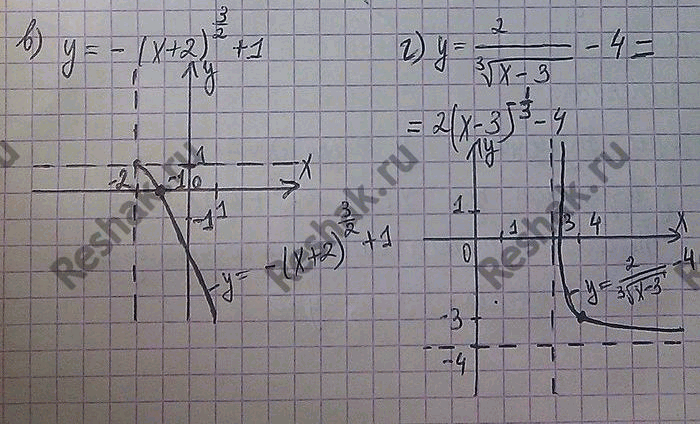 в) y = - (x+2)^{3/2} + 1
y
1
-2
-1
0
1
x
-1
y = -(x+2)^{3/2} + 1
г) y = \frac{2}{\sqrt[3]{x-3}} - 4 =
= 2(x-3)^{-\frac{1}{3}} - 4
y
1
0
1
3
4
x
y = \frac{2}{\sqrt[3]{x-3}} - 4
-3
-4
Reshak.ru
Reshak.ru
Reshak.ru